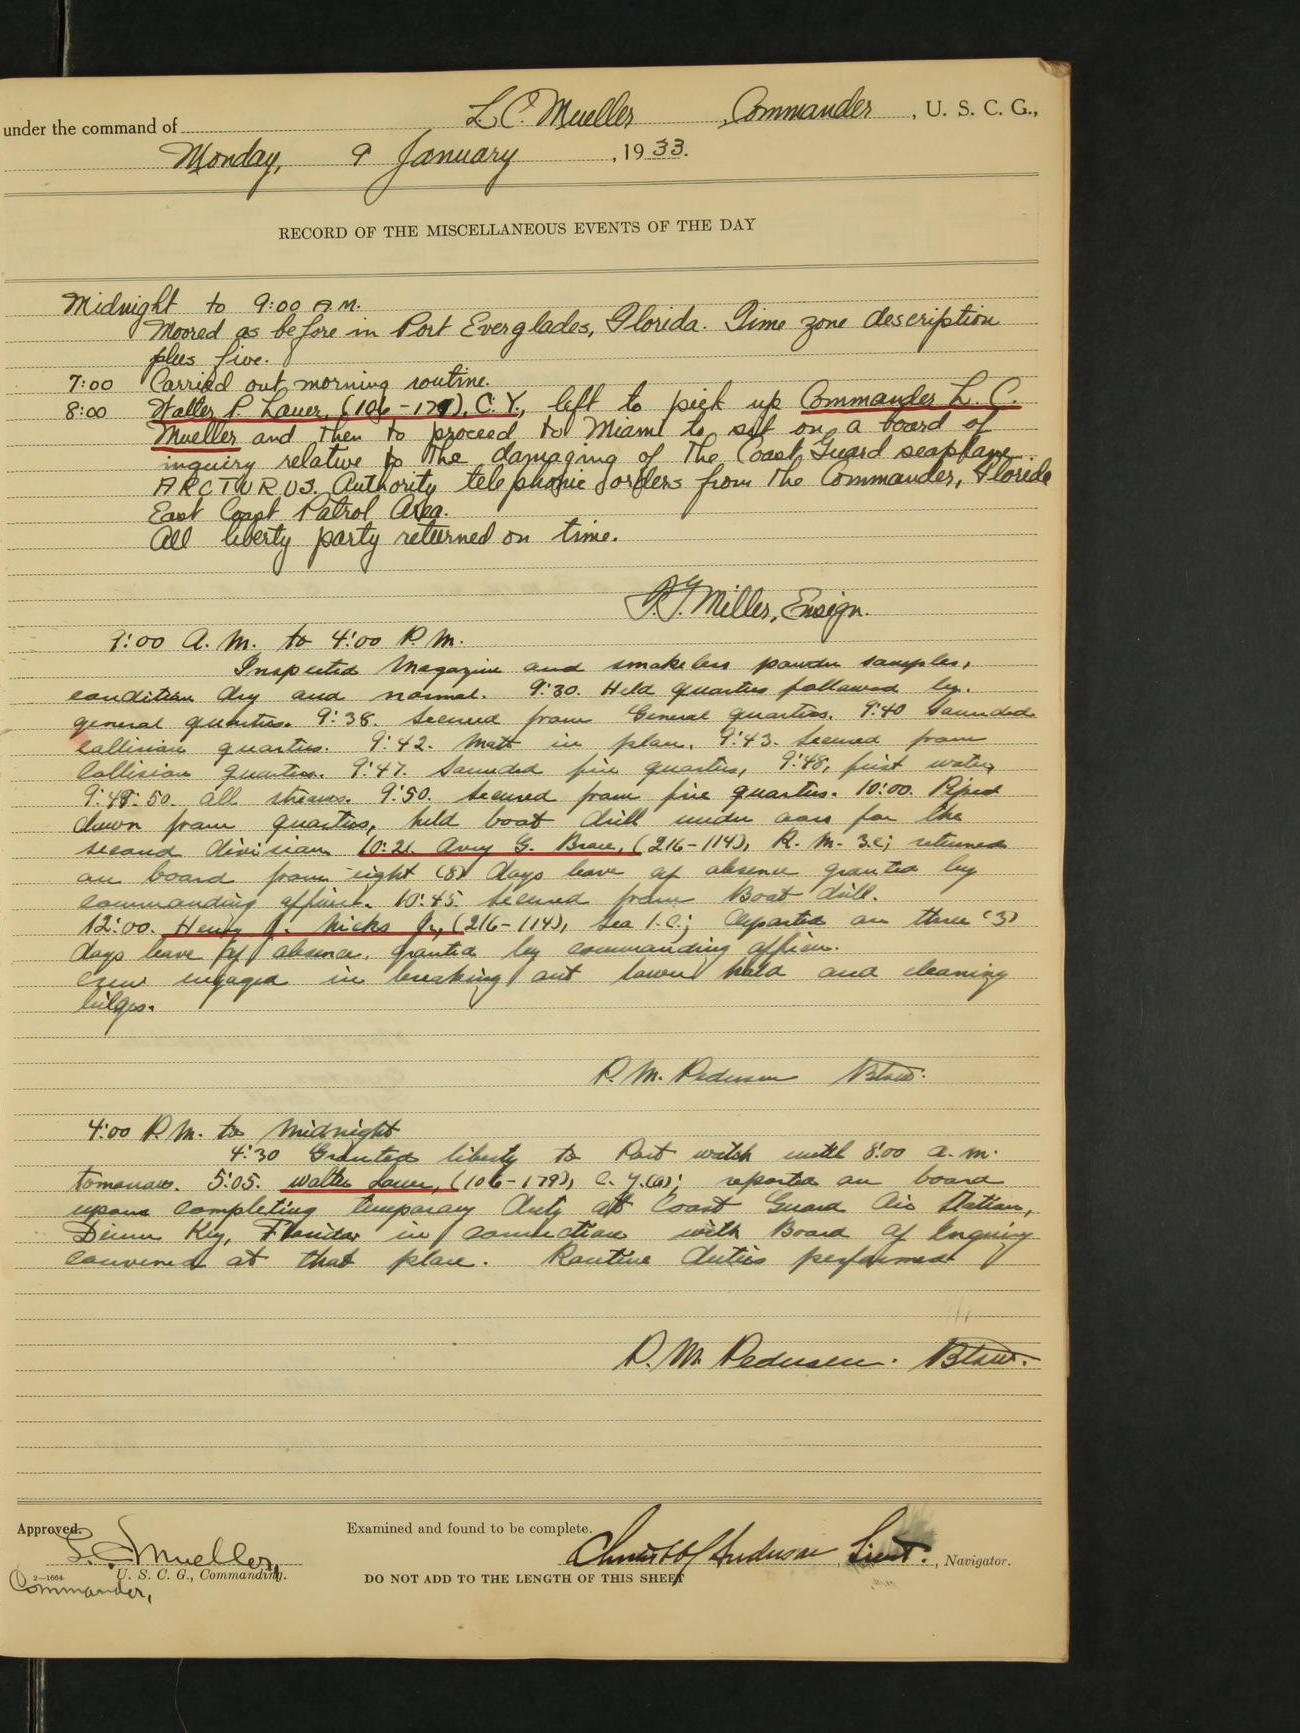 under the command of L. C. Mueller, Commander, U. S. C. G.,
Monday, 9 January, 1933.
RECORD OF THE MISCELLANEOUS EVENTS OF THE DAY
Midnight to 9:00 A.M.
Moored as before in Port Everglades, Florida. Time zone description
plus five.
7:00 Carried out morning routine.
8:00 Walter P. Lauer, (106-179), C.Y., left to pick up Commander L. C.
Mueller and then to proceed to Miami to sit on a board of
inquiry relative to the damaging of the Coast Guard seaplane
ARCTURUS. Authority telephonic orders from the Commander, Florida
East Coast Patrol Area.
All liberty party returned on time.
Miller, Ensign.
9:00 A. M. to 4:00 P. M.
Inspected Magazine and smokeless powder samples,
condition dry and normal. 9:30. Held quarters followed by
general quarters. 9:38. Secured from General quarters. 9:40 Sounded
collision quarters. 9:42. Matt in place. 9:43. Secured from
Collision quarters. 9:47. Sounded fire quarters, 9:48, first water,
9:48:50. all streams. 9:50. Secured from fire quarters. 10:00. Piped
down from quarters, held boat drill under oars for the
second division. 10:21. Avery G. Brace, (216-114), R. M. 3.c; returned
on board from eight (8) days leave of absence granted by
commanding officer. 10:45. Secured from Boat drill.
12:00. Henry J. Hicks Jr., (216-114), Sea 1.C.; departed on three (3)
days leave of absence, granted by commanding officer.
Crew engaged in breaking out lower hold and cleaning
bilges.
P. M. Pedersen Btsw.
4:00 P.M. to Midnight
4:30 Granted liberty to Port watch until 8:00 a.m.
tomorrow. 5:05. Walter Lauer, (106-179), C. Y.(a); reported on board
upon completing temporary duty at Coast Guard Air Station,
Dinner Key, Florida in connection with Board of Inquiry
convened at that place. Routine duties performed
P. M. Pedersen. Btsw.
Approved.
L. C. Mueller,
U. S. C. G., Commanding.
Commander,
2—1664
Examined and found to be complete.
Anderson, Lieut., Navigator.
DO NOT ADD TO THE LENGTH OF THIS SHEET